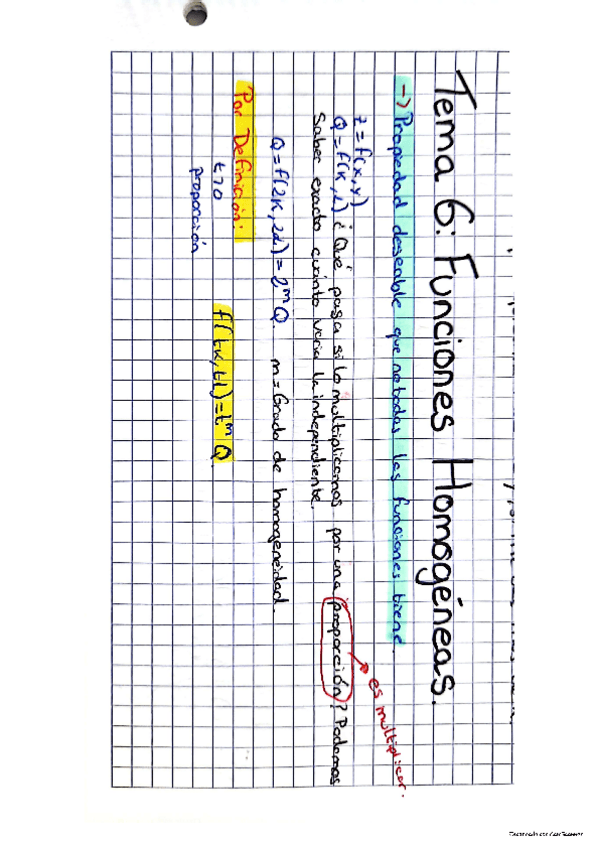 Tema 6: Funciones Homogéneas.
-> Propiedad deseable que no todas las funciones tiene.
z = f(x,y)
Q = f(K,L) ¿Qué pasa si lo multiplicamos por una proporción? Podemos
es multiplicar.
Saber exacto cuánto varia la independiente.
Q = f(2K, 2L) = 2^m Q. m = Grado de homogeneidad.
Por Definición:
t>0 f(tK, tL) = t^m Q.
proporción